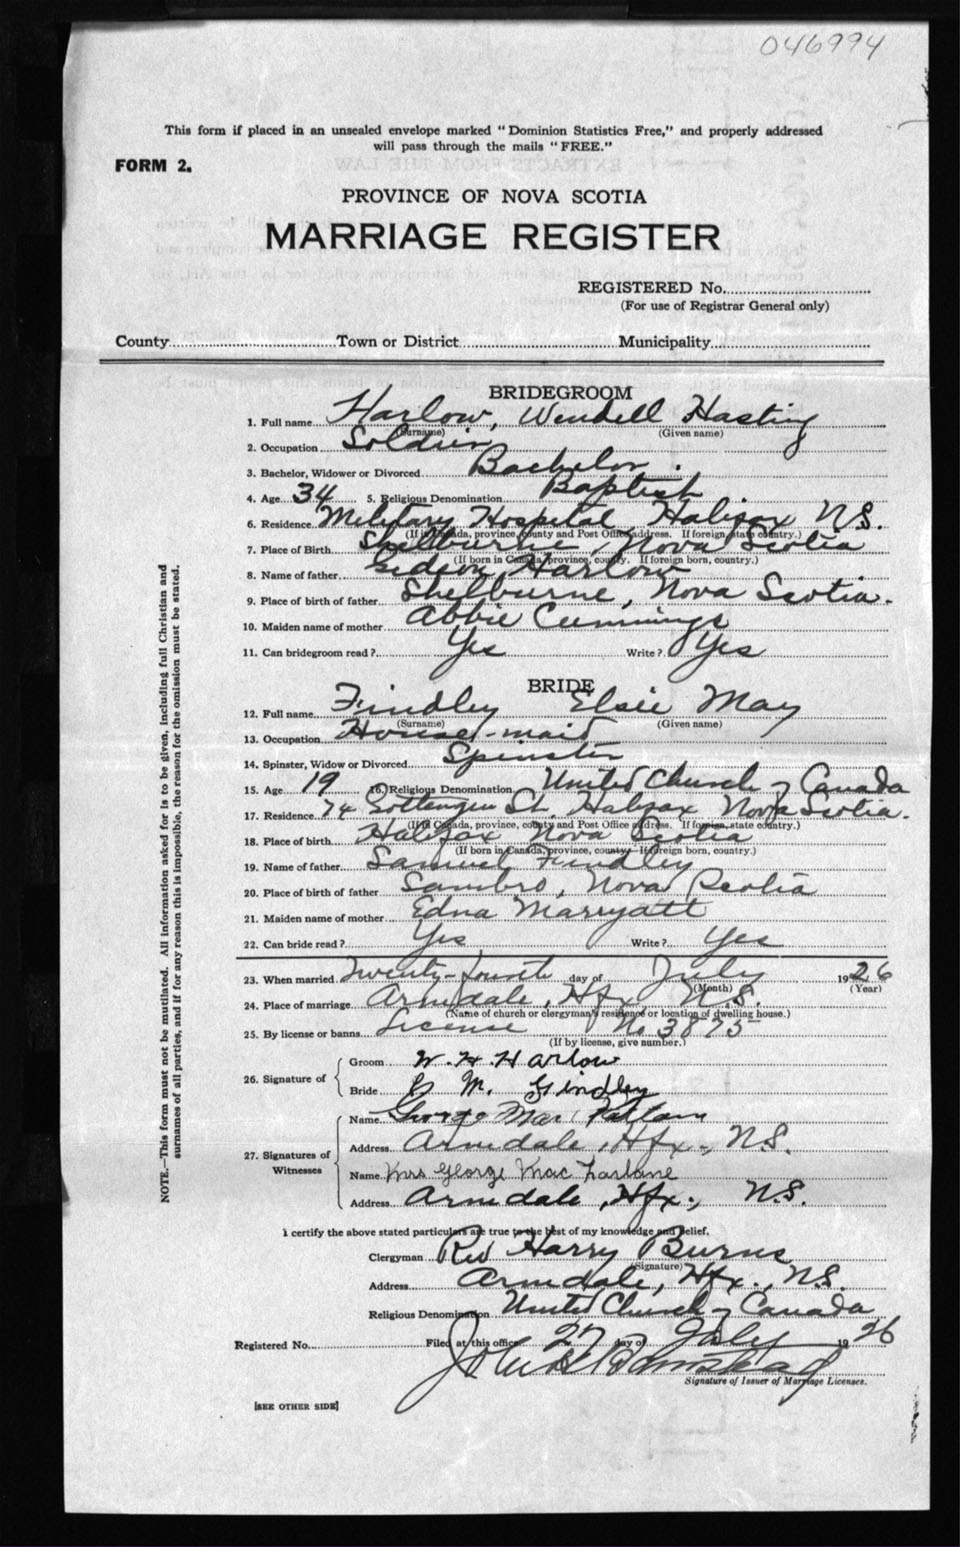 046994
This form if placed in an unsealed envelope marked "Dominion Statistics Free," and properly addressed
will pass through the mails "FREE."
FORM 2.
PROVINCE OF NOVA SCOTIA
MARRIAGE REGISTER
REGISTERED No.
(For use of Registrar General only)
County Town or District Municipality
BRIDEGROOM
1. Full name Harlow, Wendell Hasting
(Surname) (Given name)
2. Occupation Soldier
3. Bachelor, Widower or Divorced Bachelor.
4. Age 34 5. Religious Denomination Baptist.
6. Residence Military Hospital, Halifax N.S.
(If in Canada, province, county and Post Office address. If foreign, state country.)
7. Place of Birth Shelburne, Nova Scotia
(If born in Canada, province, county. If foreign born, country.)
8. Name of father Gideon Harlow
9. Place of birth of father Shelburne, Nova Scotia.
10. Maiden name of mother Abbie Cummings
11. Can bridegroom read? Yes Write? Yes
BRIDE
12. Full name Findley Elsie May
(Surname) (Given name)
13. Occupation House-maid
14. Spinster, Widow or Divorced Spinster
15. Age 19 16. Religious Denomination United Church of Canada
17. Residence 74 Gottengen St. Halifax Nova Scotia.
(If in Canada, province, county and Post Office address. If foreign, state country.)
18. Place of birth Halifax Nova Scotia
(If born in Canada, province, county. If foreign born, country.)
19. Name of father Samuel Findley
20. Place of birth of father Sambro, Nova Scotia
21. Maiden name of mother Edna Marryatt
22. Can bride read? Yes Write? Yes
23. When married Twenty-fourth day of July 1926
(Month) (Year)
24. Place of marriage Armdale, Hfx N.S.
(Name of church or clergyman's residence or location of dwelling house.)
25. By license or banns License No 3875
(If by license, give number.)
26. Signature of Groom W. H. Harlow
Bride E M. Findley
27. Signatures of Witnesses Name George Mac
Address Armdale, Hfx., N.S.
Name Mrs George Mac Farlane
Address Armdale, Hfx., N.S.
I certify the above stated particulars are true to the best of my knowledge and belief.
Clergyman Rev Harry Burns
(Signature)
Address Armdale, Hfx., N.S.
Religious Denomination United Church of Canada
Registered No. Filed at this office 27 day of July 1926
John H.
Signature of Issuer of Marriage Licenses.
[SEE OTHER SIDE]
NOTE.—This form must not be mutilated. All information asked for is to be given, including full Christian and
surnames of all parties, and if for any reason this is impossible, the reason for the omission must be stated.